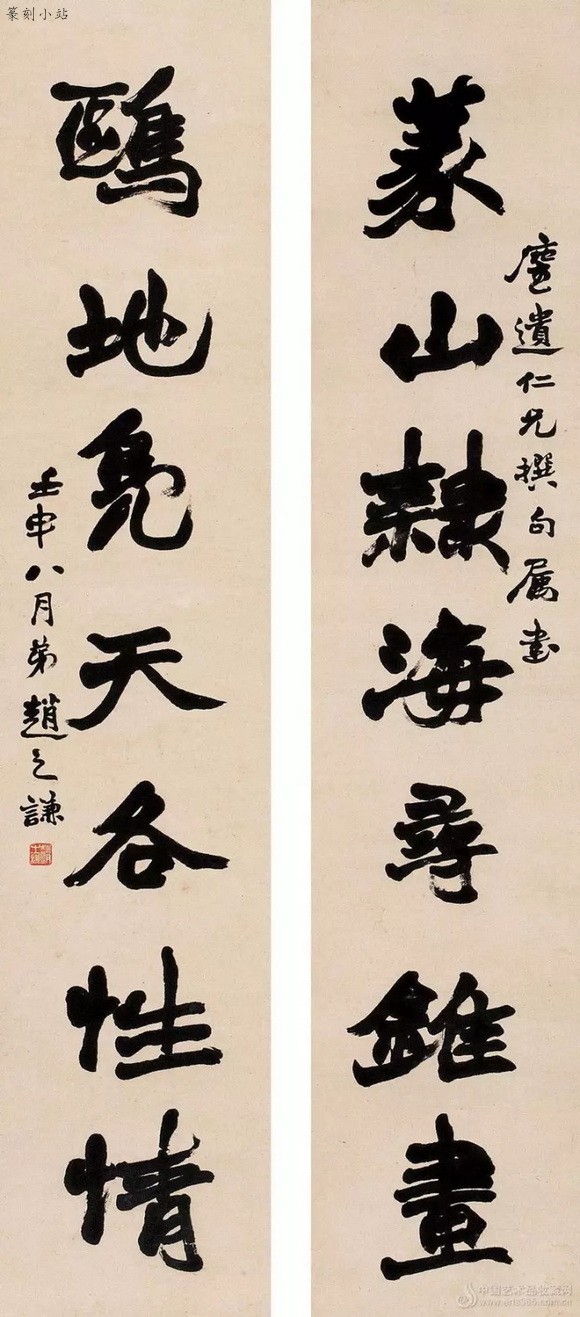 篆刻小站
篆山隸海尋錐畫
遺仁兄撰句属書
鷗地鳧天各性情
壬申八月弟趙之謙
中国艺术品收藏网